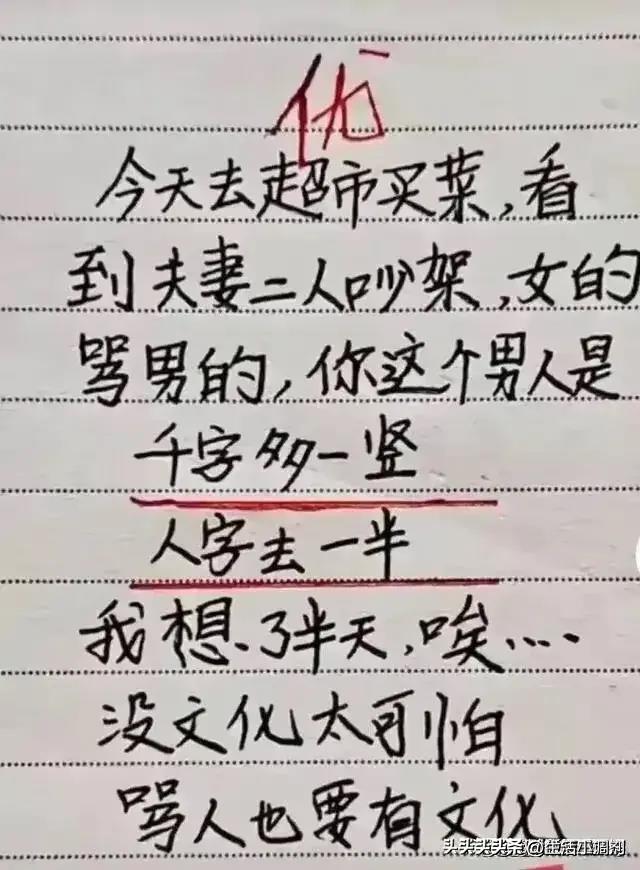 优
今天去超市买菜,看
到夫妻二人吵架,女的
骂男的,你这个男人是
千字多一竖
人字去一半
我想了半天,唉…
没文化太可怕
骂人也要有文化
头头头头条@生活小调剂